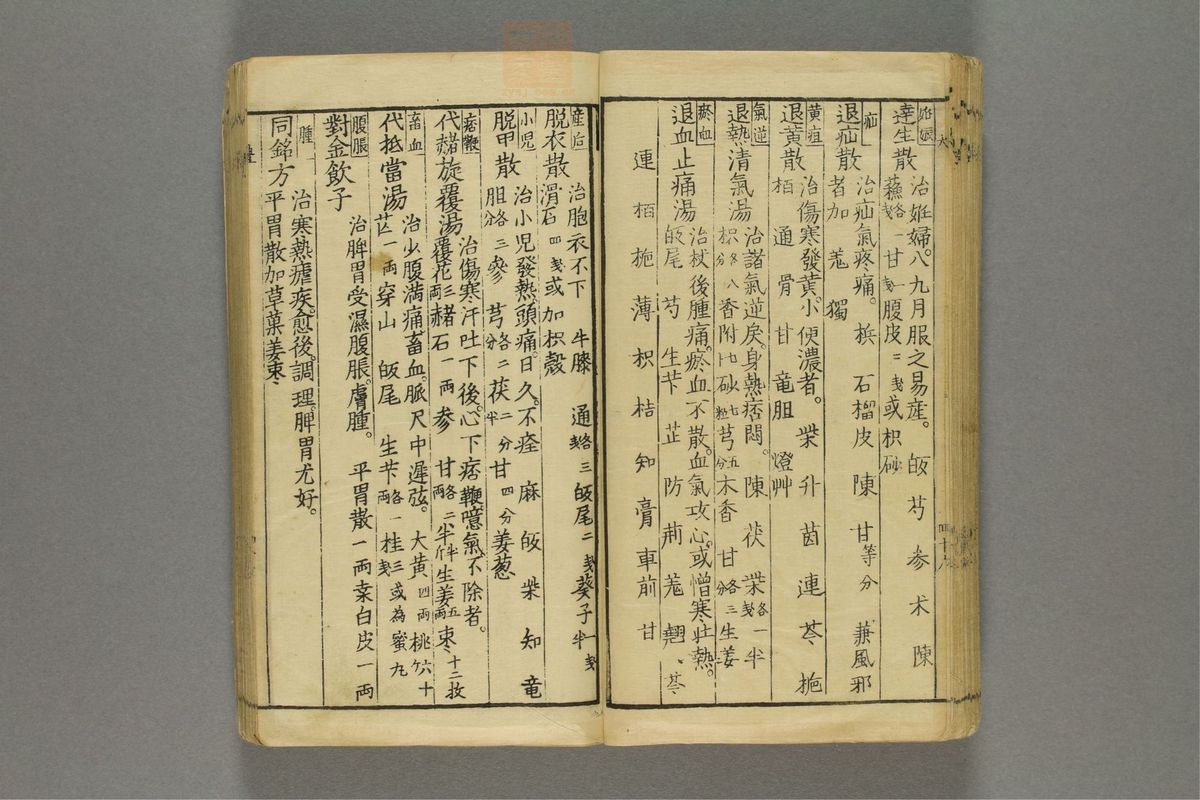 妊娠
達生散
治妊婦。八九月服之易産。皈芍參术陳
蘇各一戔甘一戔腹皮二戔或枳砂
疝
退疝散
治疝氣疼痛。梹石榴皮陳甘等分兼風邪
者加羗獨
黄疸
退黄散
治傷寒發黄。小便濃者。柴升茵連芩梔
栢通骨甘竜胆燈艸
氣逆
退熱清氣湯
治諸氣逆戻。身熱痞悶。陳茯柴各一戔半
枳八分香附七砂七粒芎五分木香甘各三分生姜
瘀血
退血止痛湯
治杖後腫痛。瘀血不散。血氣攻心。或憎寒壮熱。
皈尾芍生芐芷防荊羗翹芩
連栢梔薄枳桔知膏車前甘
産后
脱衣散
治胞衣不下牛膝通各三戔皈尾二戔葵子一戔半
滑石四戔或加枳殻
小児
脱甲散
治小児發熱。頭痛。日久。不痊麻皈柴知竜
胆各三分參芎各二分茯二分半甘四分姜葱
痞鞕
代赭旋覆湯
治傷寒汗吐下後。心下痞鞕。噫氣。不除者。
覆花三両赭石一両参甘各二両半半斤生姜五両枣十二枚
畜血
代抵當湯
治少腹満痛。畜血。脈尺中遅弦。大黄四両桃六十ケ
芒一両穿山皈尾生芐各一両桂三戔或為蜜丸
腹脹
對金飲子
治脾胃受濕腹脹。膚腫。平胃散一両桒白皮一両
腫
同銘方
治寒熱瘧疾。愈後。調理。脾胃尤好。
平胃散加草菓姜枣
四十六